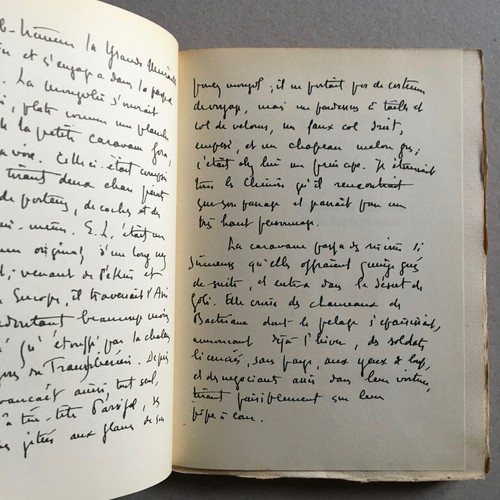 la Grande Muraille
et s'engagea dans la passe
La Mongolie s'ouvrait
, plate comme une planche
la petite caravane
Celle-ci était composée
deux chars
de porteurs, de coolies et de
-même. E. L. était un
original, d'un long
; venant de Pékin et
Europe, il traversait l'Asie
redoutant beaucoup moins
qu'étouffé par la chaleur
du Transsibérien. Depuis
ainsi, tout seul,
tête
jetées aux glaces de
poney mongol ; il ne portait pas de costume
de voyage, mais un pardessus à taille et
col de velours, un faux col droit,
empesé, et un chapeau melon gris ;
c'était chez lui un principe. Il étonnait
tous les Chinois qu'il rencontrait
sur son passage et passait pour un
très haut personnage.
La caravane passa des rivières si
sinueuses qu'elles offraient quinze gués
de suite, et entra dans le désert de
Gobi. Elle croisa des chameaux de
Bactriane dont le pelage s'épaississait,
annonçant déjà l'hiver, des soldats
licenciés, sans paye, aux yeux de loup,
et des négociants assis dans leur voiture,
tirant paisiblement sur leur
pipe à eau.